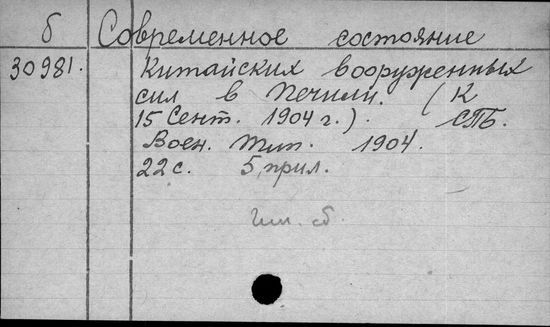 б Современное состояние
30981. Китайских вооруженных
сил в Печили. (К
15 Сент. 1904 г.). СПБ.
Воен. тип. 1904.
22 с. 5, прил.
сб.